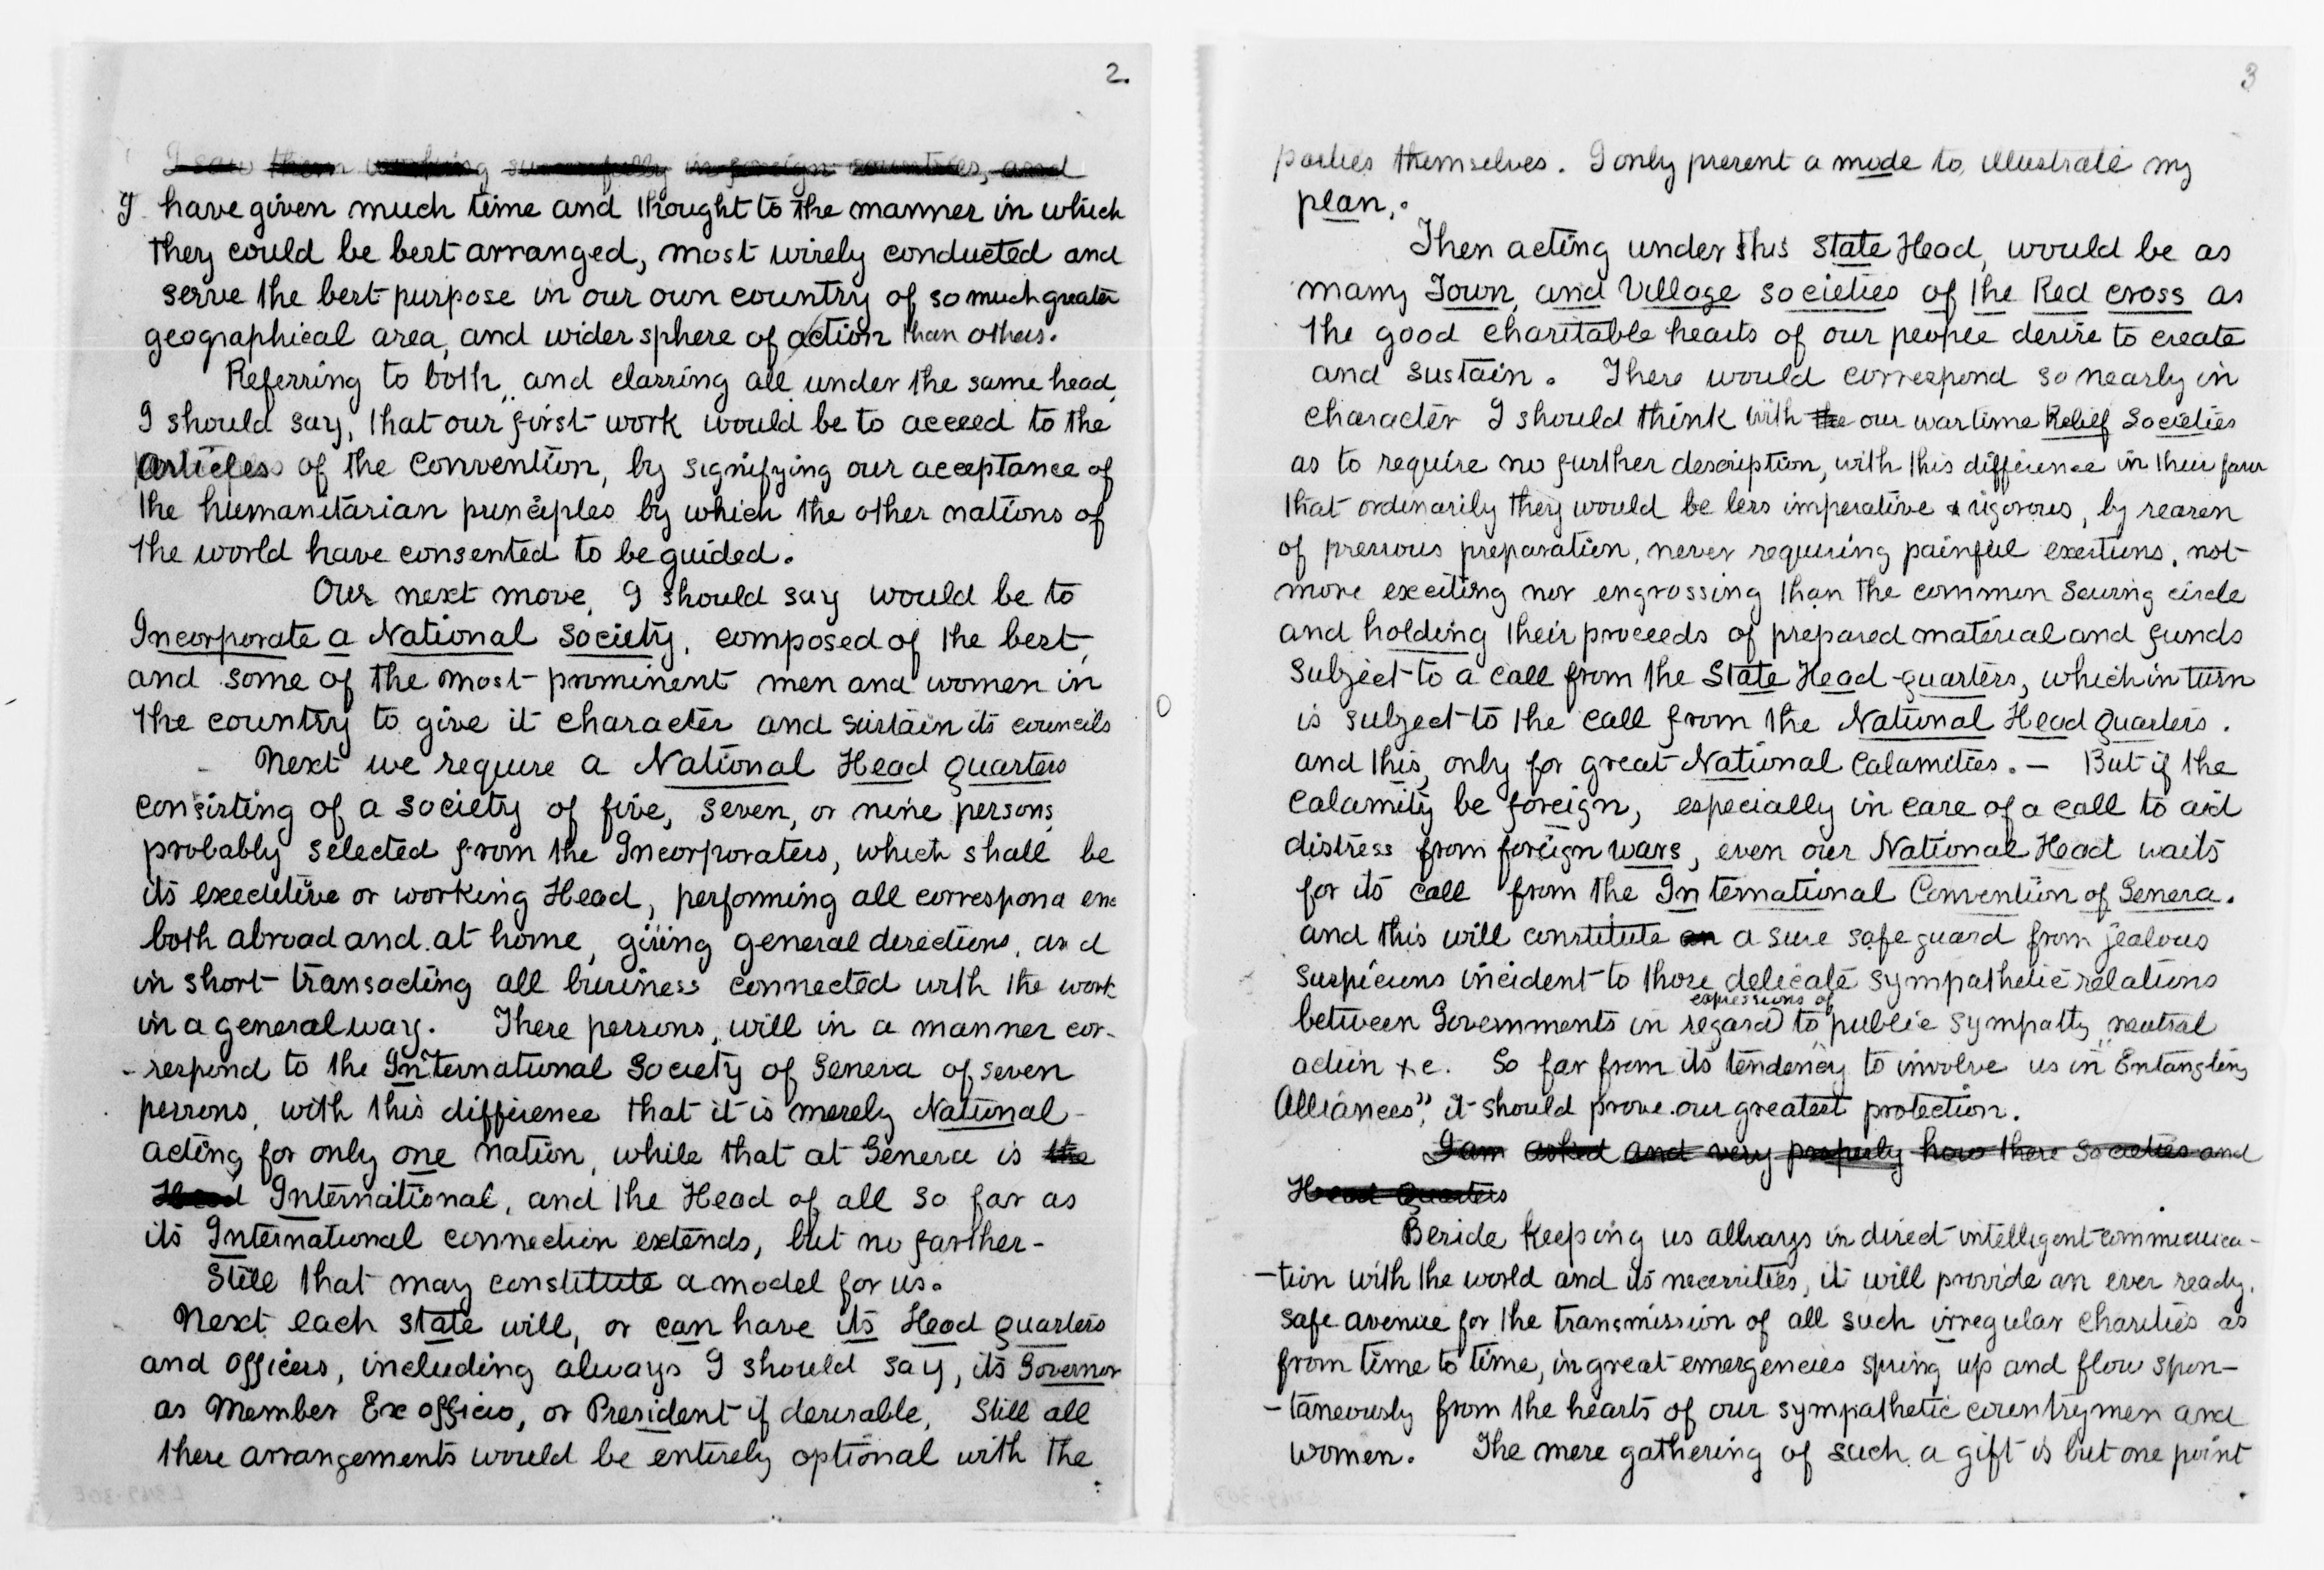 2.
I saw them working successfully in foreign countries, and
I have given much time and thought to the manner in which
they could be best arranged, most wisely conducted and
serve the best purpose in our own country of so much greater
geographical area, and wider sphere of action than others.
Referring to both, and classing all under the same head,
I should say, that our first work would be to acceed to the
articles of the convention, by signifying our acceptance of
the humanitarian principles by which the other nations of
the world have consented to be guided.
Our next move, I should say would be to
Incorporate a National Society, composed of the best,
and some of the most prominent men and women in
the country to give it character and sustain its councils
Next we require a National Head Quarters
consisting of a society of five, seven, or nine persons,
probably selected from the Incorporaters, which shall be
its executive or working Head, performing all correspond enc
both abroad and at home, giving general directions, and
in short transacting all business connected with the work
in a general way. These persons, will in a manner cor-
-respond to the International Society of Geneva of seven
persons, with this difference that it is merely National -
acting for only one nation, while that at Geneva is the
Head International, and the Head of all so far as
its International connection extends, but no farther -
Still that may constitute a model for us.
Next each state will, or can have its Head Quarters
and officers, including always I should say, its Governor
as Member Ex officio, or President if desirable, Still all
these arrangements would be entirely optional with the
3
parties themselves. I only present a mode to illustrate my
plan,.
Then acting under this State Head, would be as
many Town, and Village societies of the Red cross as
the good charitable hearts of our people desire to create
and sustain. These would correspond so nearly in
character I should think with the our war time Relief Societies
as to require no further description, with this difference in their favor
that ordinarily they would be less imperative & rigorous, by reason
of previous preparation, never requiring painful exertions, not
more exciting nor engrossing than the common sewing circle
and holding their proceeds of prepared material and funds
subject to a call from the State Head-quarters, which in turn
is subject to the call from the National Head Quarters.
and this, only for great National Calamities. - But if the
calamity be foreign, especially in case of a call to aid
distress from foreign wars, even our National Head waits
for its call from the International Convention of Geneva.
and this will constitute an a sure safe guard from jealous
suspicions incident to those delicate sympathetic relations
expressions of
between Governments in regard to public sympathy, neutral
action &c. So far from its tendency to involve us in Entangling
Alliances", it should prove our greatest protection.
I am asked and very properly how these Societies and
Head Quarters
Beside keeping us allways in direct intelligent communica-
-tion with the world and its necessities, it will provide an ever ready,
safe avenue for the transmission of all such irregular charities as
from time to time, in great emergencies spring up and flow spon-
-taneously from the hearts of our sympathetic countrymen and
women. The mere gathering of such a gift is but one point